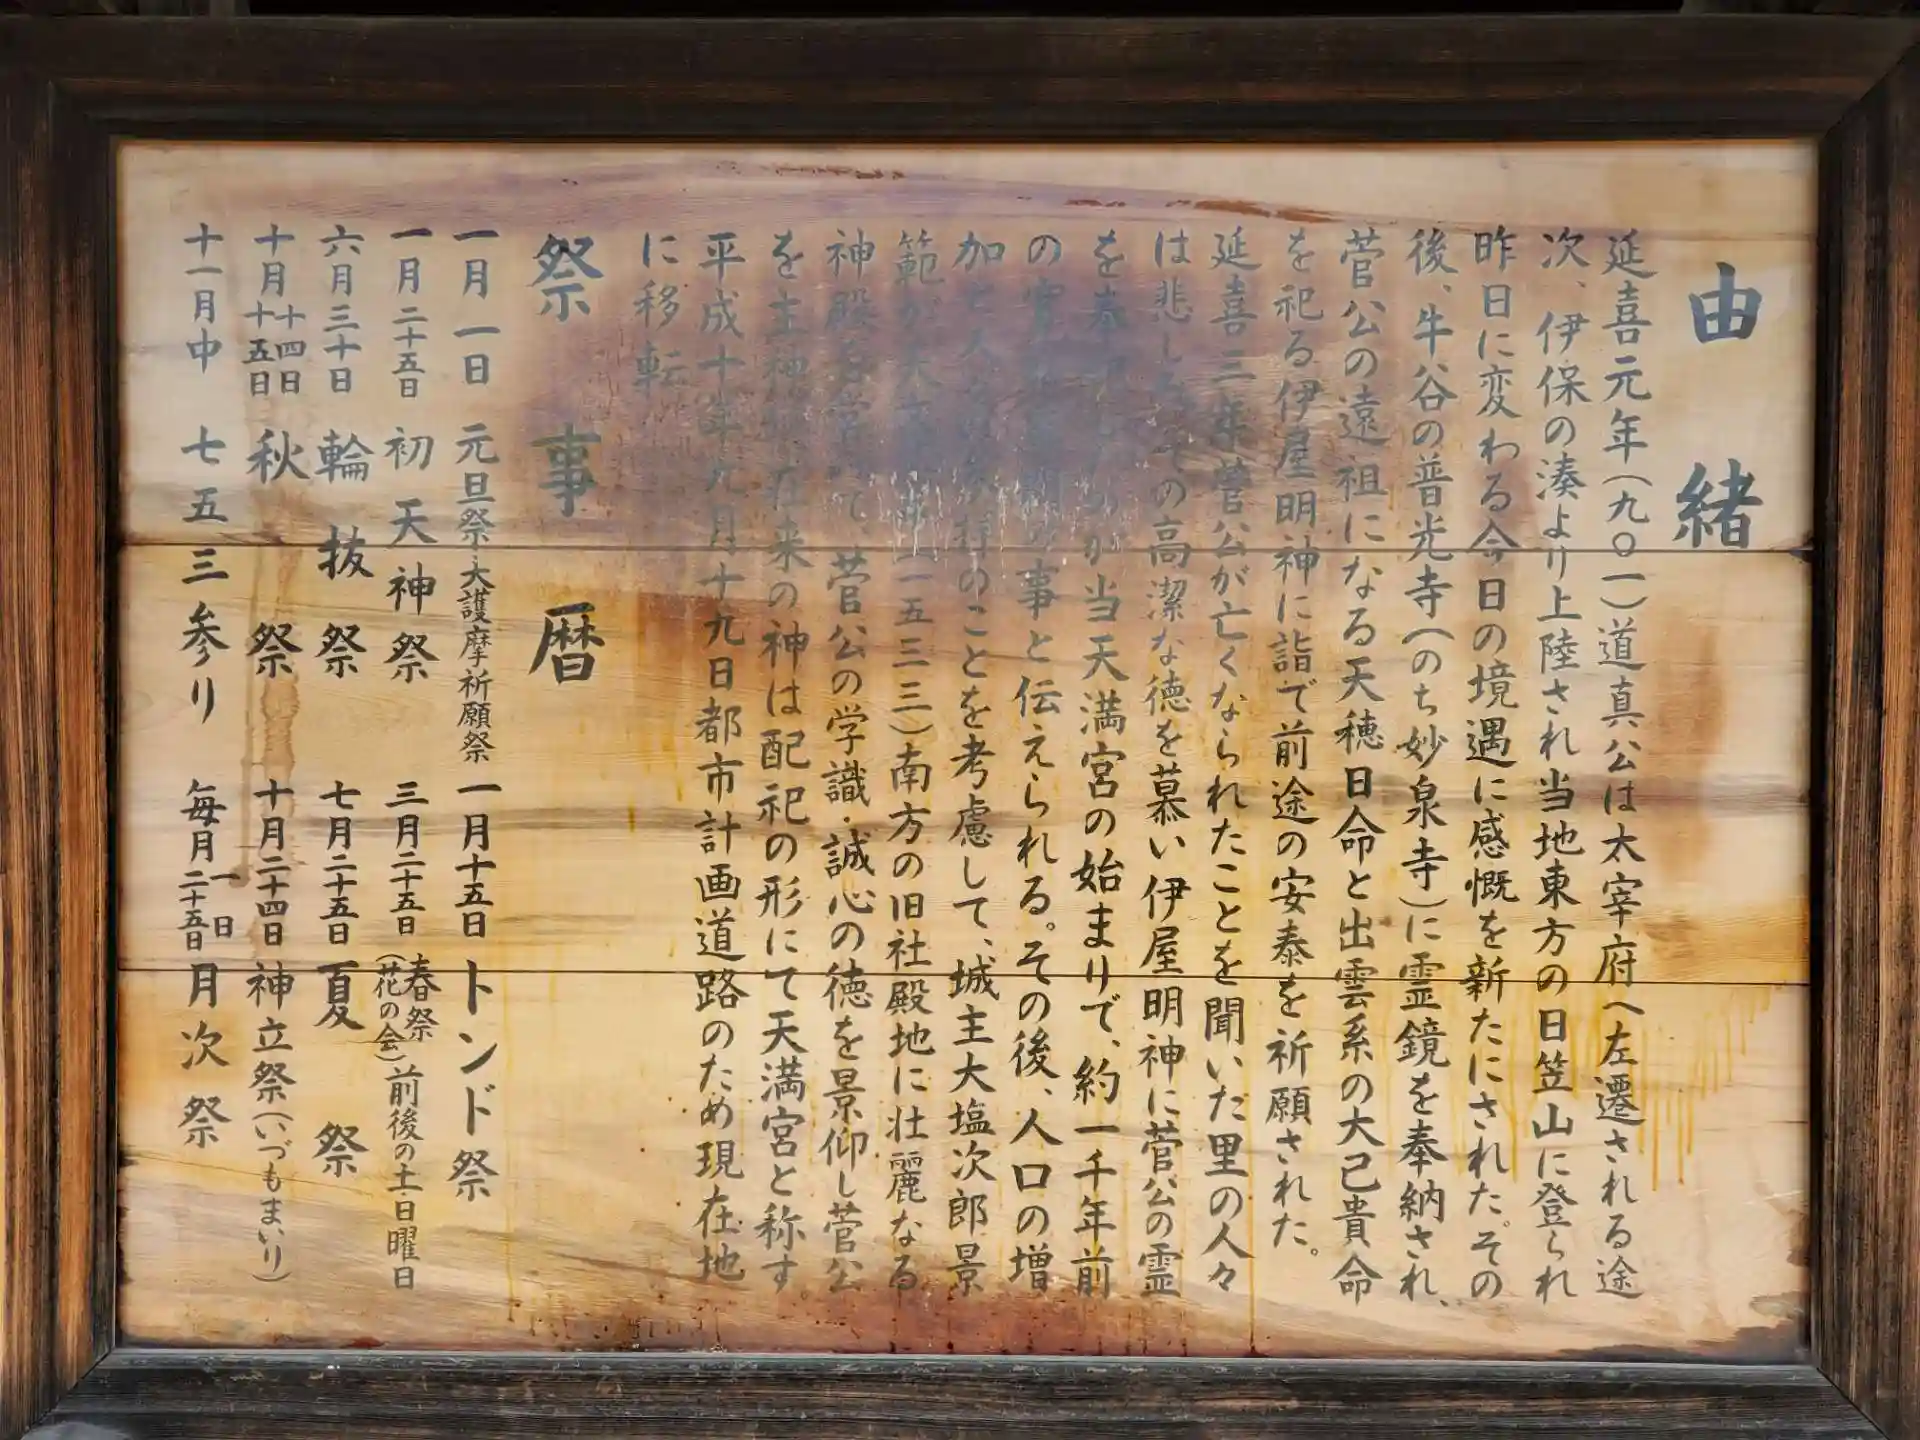 由緒
延喜元年(九〇一)道真公は太宰府へ左遷される途
次、伊保の湊より上陸され当地東方の日笠山に登られ
昨日に変わる今日の境遇に感慨を新たにされた。その
後、牛谷の普光寺(のち妙泉寺)に霊鏡を奉納され、
菅公の遠祖になる天穂日命と出雲系の大己貴命
を祀る伊屋明神に詣で前途の安泰を祈願された。
延喜三年菅公が亡くなられたことを聞いた里の人々
は悲しみその高潔な徳を慕い伊屋明神に菅公の霊
を奉が当天満宮の始まりで、約一千年前
の事と伝えられる。その後、人口の増
加と拝のことを考慮して、城主大塩次郎景
範が天文二(一五三三)南方の旧社殿地に壮麗なる
神殿て、菅公の学識・誠心の徳を景仰し菅公
を主神、在来の神は配祀の形にて天満宮と称す。
平成十年九月十九日都市計画道路のため現在地
に移転
祭事暦
一月一日 元旦祭・大護摩祈願祭 一月十五日 トンド祭
一月二十五日 初天神祭 三月二十五日 春祭(花の会)前後の土・日曜日
六月三十日 輪抜祭 七月二十五日 夏祭
十月十四日十五日 秋祭 十月二十四日 神立祭(いづもまいり)
十一月中 七五三参り 毎月一日二十五日 月次祭